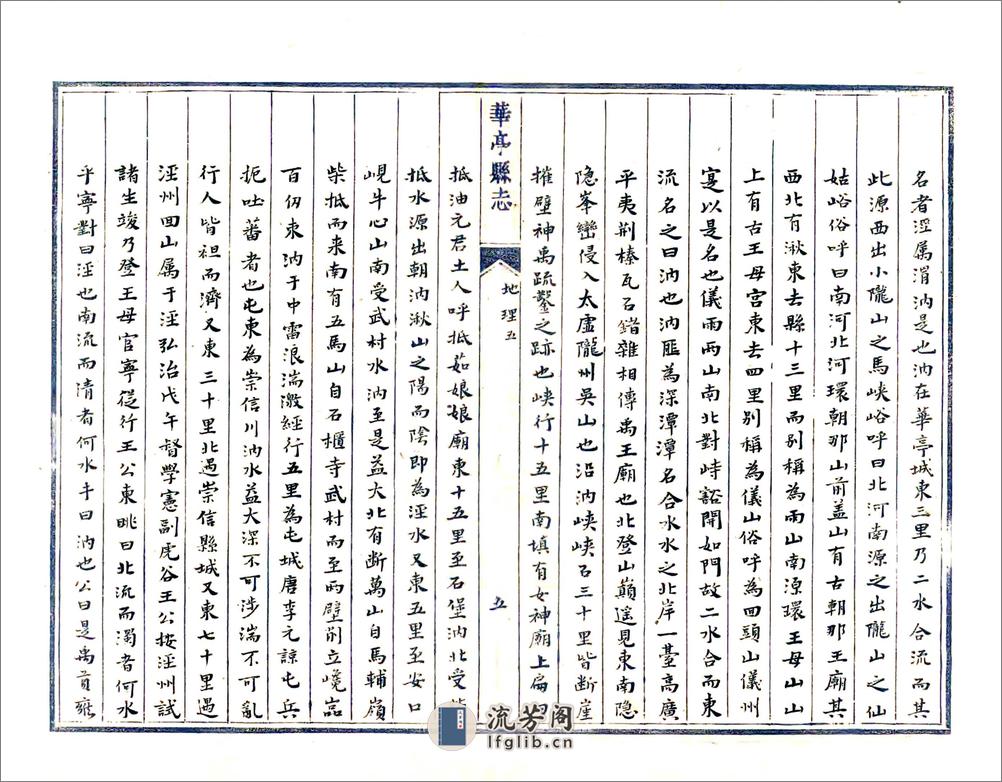 名者涇属渭汭是也汭在華亭城東三里乃二水合流而其
此源西出小隴山之馬峡峪呼曰北河南源之出隴山之仙
姑峪俗呼曰南河北河環朝那山前盖山有古朝那王廟其
西北有湫東去縣十三里而别稱為雨山南源環王母山山
上有古王母宫東去四里别稱為儀山俗呼為回頭山儀州
寔以是名也儀雨兩山南北對峙豁開如門故二水合而東
流名之曰汭也汭匪為深潭潭名合水水之北岸一臺高廣
平夷荆榛瓦石錯雜相傳禹王廟也北登山巔遥見東南隐
隐峯巒侵入太虚隴州吴山也沿汭峡峡石三十里皆断崖
摧壁神禹疏鑿之跡也峡行十五里南填有女神廟上扁
華亭縣志
地理五
五
抵油元君土人呼抵茹娘娘廟東十五里至石堡汭北受
抵水源出朝汭湫山之陽而陰即為涇水又東五里至安口
峴牛心山南受武村水汭至是益大北有断萬山自馬輔嶺
柴抵而来南有五馬山自石櫃寺武村而至两壁削立嶢岩
百仞東汭于中雷浪湍激經行五里為屯城唐李元諒屯兵
扼吐蕃者也屯東為崇信川汭水益大深不可涉湍不可亂
行人皆袒而濟又東三十里北過崇信縣城又東七十里過
涇州回山属于涇弘治戊午督學憲副虎谷王公按涇州試
諸生竣乃登王母宫寧從行王公東眺曰北流而濁者何水
乎寧對曰涇也南流而清者何水乎曰汭也公曰是禹貢雍
流芳阁
lfglib.cn